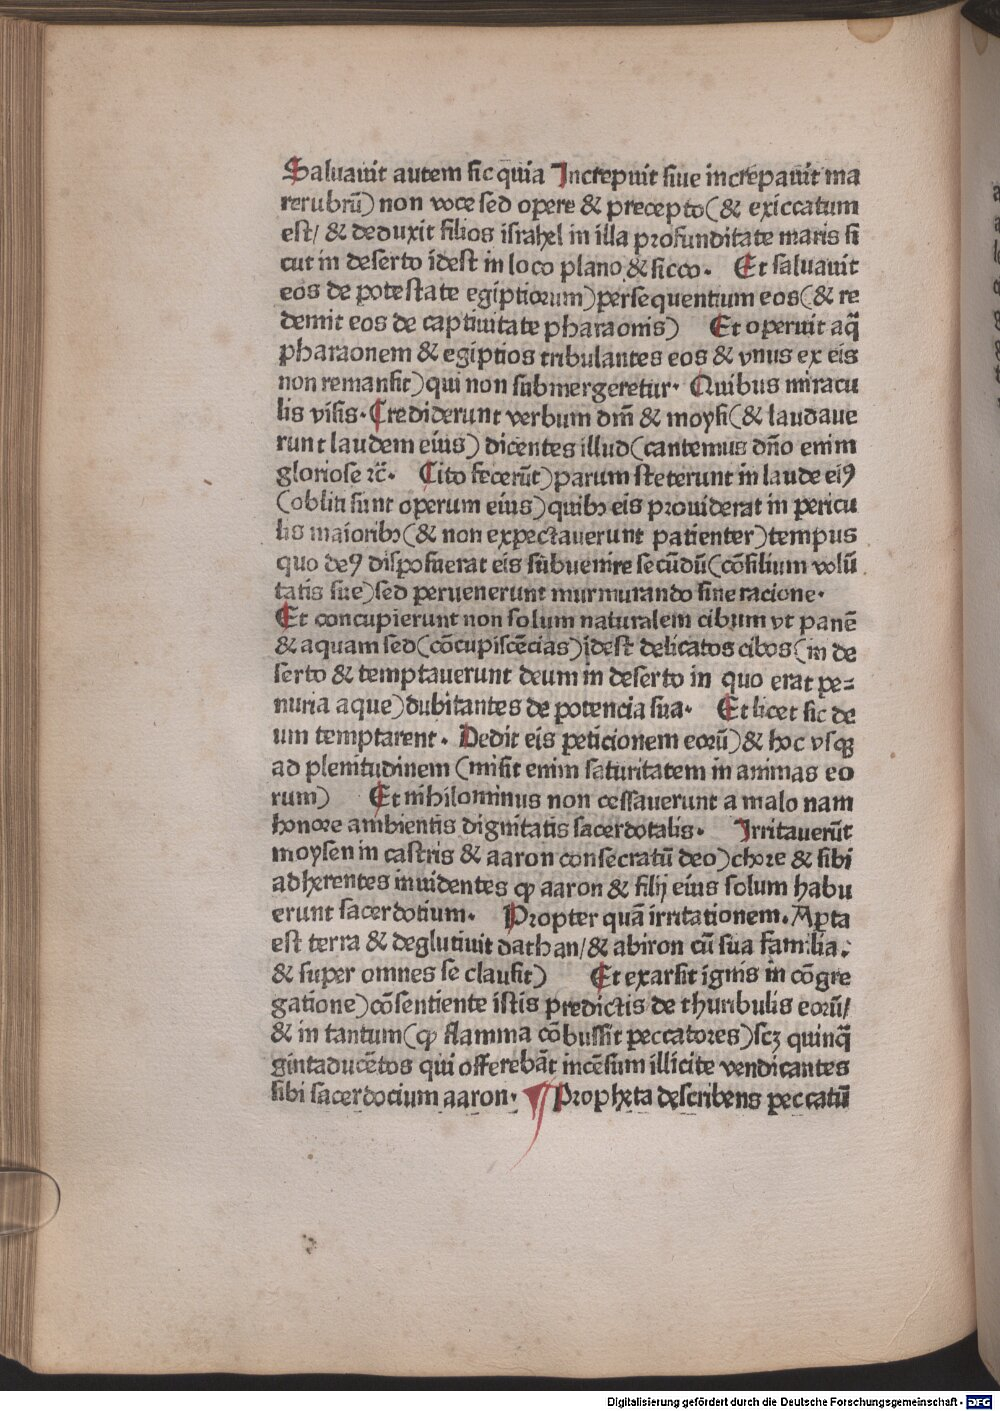 Saluauit autem sic quia Increpuit siue increpauit ma
re rubrū) non voce sed opere & precepto(& exiccatum
est/ & deduxit filios israhel in illa profunditate maris si
cut in deserto idest in loco plano & sicco. Et saluauit
eos de potestate egiptiorum) persequentium eos(& re
demit eos de captiuitate pharaonis) Et operuit aq̄
pharaonem & egiptios tribulantes eos & vnus ex eis
non remansit) qui non submergeretur. Quibus miracu
lis visis. Crediderunt verbum dm̄ & moysi(& laudaue
runt laudem eius) dicentes illud(cantemus dn̄o enim
gloriose ⁊c̄. Cito fecerūt) parum steterunt in laude eiꝯ
(obliti sunt operum eius) quibꝫ eis prouiderat in pericu
lis maioribꝫ(& non expectauerunt patienter) tempus
quo deꝯ disposuerat eis subuenire secūdū(cōsilium volū
tatis sue) sed peruenerunt murmurando sine racione.
Et concupierunt non solum naturalem cibum vt panē
& aquam sed(cōcupiscēcias) idest delicatos cibos(in de
serto & temptauerunt deum in deserto in quo erat pe=
nuria aque) dubitantes de potencia sua. Et licet sic de
um temptarent. Dedit eis peticionem eorū) & hoc vsqꝫ
ad plenitudinem (misit enim saturitatem in animas eo
rum) Et nihilominus non cessauerunt a malo nam
honore ambientis dignitatis sacerdotalis. Irritauerūt
moysen in castris & aaron consecratū deo) chore & sibi
adherentes inuidentes ꝙ aaron & filij eius solum habu
erunt sacerdotium. Propter quā irritationem. Aꝑta
est terra & deglutiuit dathan/& abiron cū sua familia.
& super omnes se clausit) Et exarsit ignis in cōgre
gatione) cōsentiente istis predictis de thuribulis eorū/
& in tantum(ꝙ flamma cōbussit peccatores) scꝫ quinq̄
gintaducētos qui offerebāt incēsum illicite vendicantes
sibi sacerdocium aaron. ¶ Propheta describens peccatū
Digitalisierung gefördert durch die Deutsche Forschungsgemeinschaft - DFG